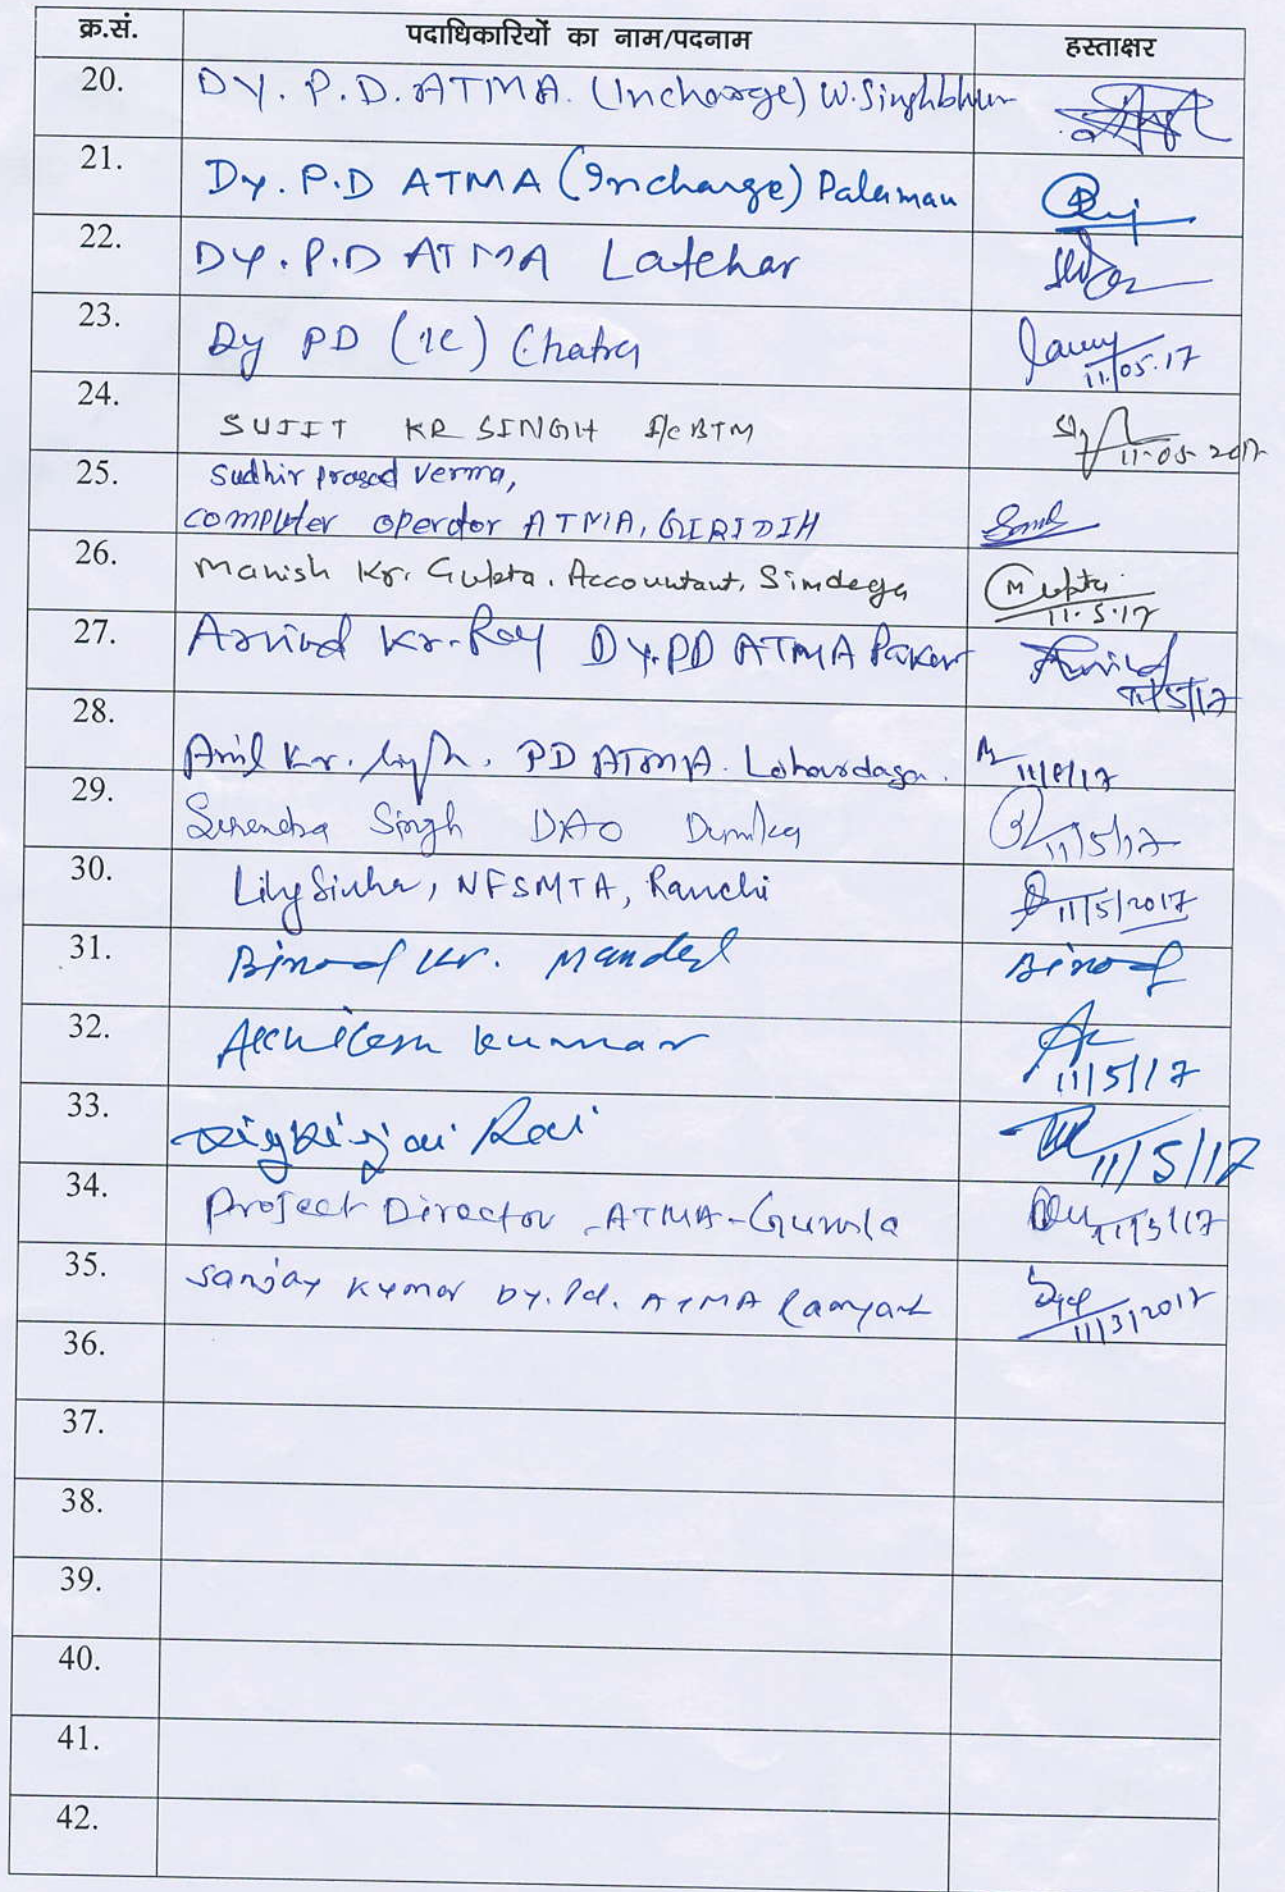 क्र.सं. पदाधिकारियों का नाम/पदनाम हस्ताक्षर
20. DY. P.D. ATMA. (Incharge) W. Singhbhum
21. Dy. P.D ATMA (Incharge) Palamau
22. DY. P.D ATMA Latehar
23. Dy PD (IC) Chatra
11.05.17
24. SUJIT KR SINGH I/C BTM 11-05-2017
25. Sudhir prasad verma,
computer operator ATMA, GIRIDIH
26. Manish Kr. Gupta. Accountant, Simdega Gupta
11.5.17
27. Arvind Kr. Roy DY. PD ATMA Pakur Arvind
11/5/17
28. Anil Kr. Singh. PD ATMA. Lohardaga.
29. Surendra Singh DAO Dumka 11/5/17
30. Lily Sinha, NFSMTA, Ranchi 11/5/2017
31. Binod Kr. Mandal Binod
32. Akhilesh Kumar 11/5/17
33. Digvijai Rai 11/5/17
34. Project Director ATMA-Gumla 11/5/17
35. Sanjay Kumar Dy. Pd. ATMA Ramgarh
36.
37.
38.
39.
40.
41.
42.